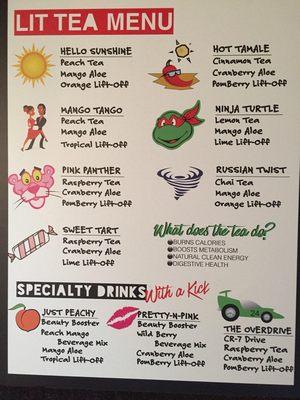 LIT TEA MENU
HELLO SUNSHINE
Peach Tea
Mango Aloe
Orange Lift-Off
HOT TAMALE
Cinnamon Tea
Cranberry Aloe
PomBerry Lift-Off
MANGO TANGO
Peach Tea
Mango Aloe
Tropical Lift-Off
NINJA TURTLE
Lemon Tea
Mango Aloe
Lime Lift-Off
PINK PANTHER
Raspberry Tea
Cranberry Aloe
PomBerry Lift-Off
RUSSIAN TWIST
Chai Tea
Mango Aloe
Orange Lift-Off
SWEET TART
Raspberry Tea
Cranberry Aloe
Lime Lift-Off
What does the tea do?
BURNS CALORIES
BOOSTS METABOLISM
NATURAL CLEAN ENERGY
DIGESTIVE HEALTH
SPECIALTY DRINKS With a Kick
JUST PEACHY
Beauty Booster
Peach Mango
Beverage Mix
Mango Aloe
Tropical Lift-Off
PRETTY-N-PINK
Beauty Booster
Wild Berry
Beverage Mix
Cranberry Aloe
PomBerry Lift-Off
24
THE OVERDRIVE
CR-7 Drive
Raspberry Tea
Cranberry Aloe
PomBerry Lift-Off